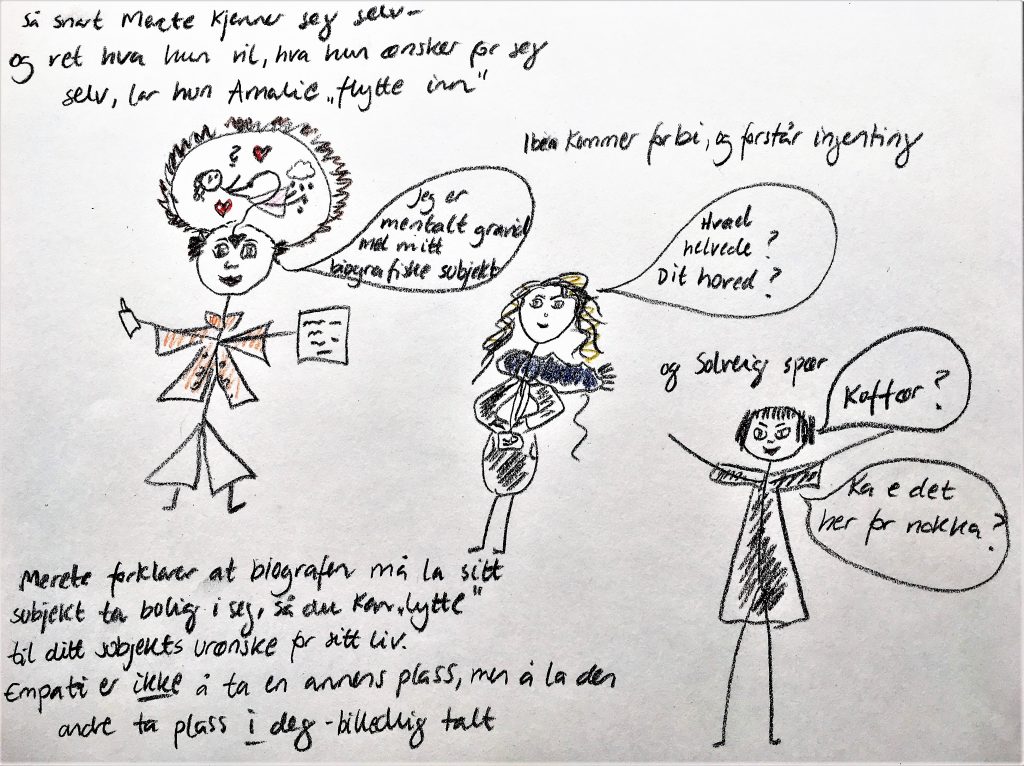 Så snart Merete kjenner seg selv –
og vet hva hun vil, hva hun ønsker for seg
selv, lar hun Amalie „flytte inn"
?
Jeg er
mentalt gravid
med mitt
biografiske subjekt
Ibea kommer forbi, og forstår ingenting
Hvad
helvede?
Dit hoved?
og Solveig spør
Koffor?
Ka e det
her for nokka?
Merete forklarer at biografen må la sitt
subjekt ta bolig i seg, så du kan „lytte"
til ditt subjekts urønske for sitt liv.
Empati er ikke å ta en annens plass, men å la den
andre ta plass i deg - billedlig talt